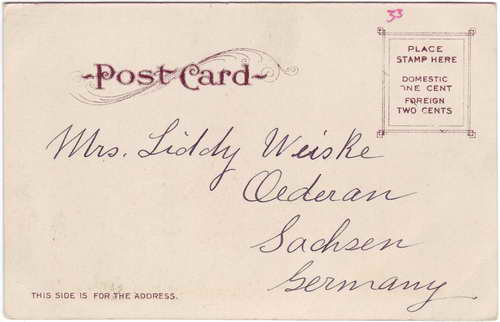 33
PLACE
STAMP HERE
DOMESTIC
ONE CENT
FOREIGN
TWO CENTS
Post Card
Mrs. Liddy Weiske
Oederan
Sachsen
Germany
THIS SIDE IS FOR THE ADDRESS.